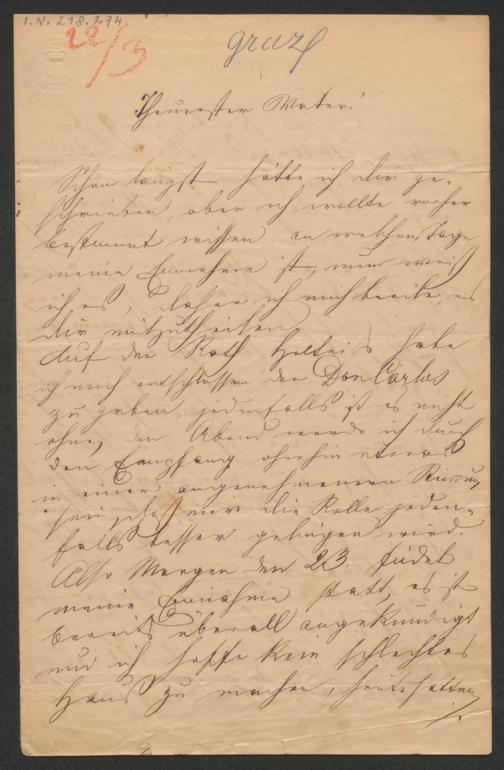 I.N. 218.274
22/3
Graz
Theuerster Vater!
Schon längst hätte ich dir ge-
schrieben, aber ich wollte vorher
bestimmt wissen an welchem Tage
meine Einnahme ist, nun weiß
ich es, daher ich mich beeile, es
dir mitzutheilen.
Auf den Rath Holtei's habe
ich mich entschlossen den Don Carlos
zu geben, jedenfalls ist es nicht
ohne, den Abend werde ich durch
den Empfang ohnehin etwas
in einer angenehmeren Stimmung
sein, daß mir die Rolle jeden-
falls besser gelingen wird.
Also Morgen den 23. findet
meine Einnahme statt, es ist
bereits überall angekündigt
und ich hoffe kein schlechtes
Haus zu machen, heute hatten